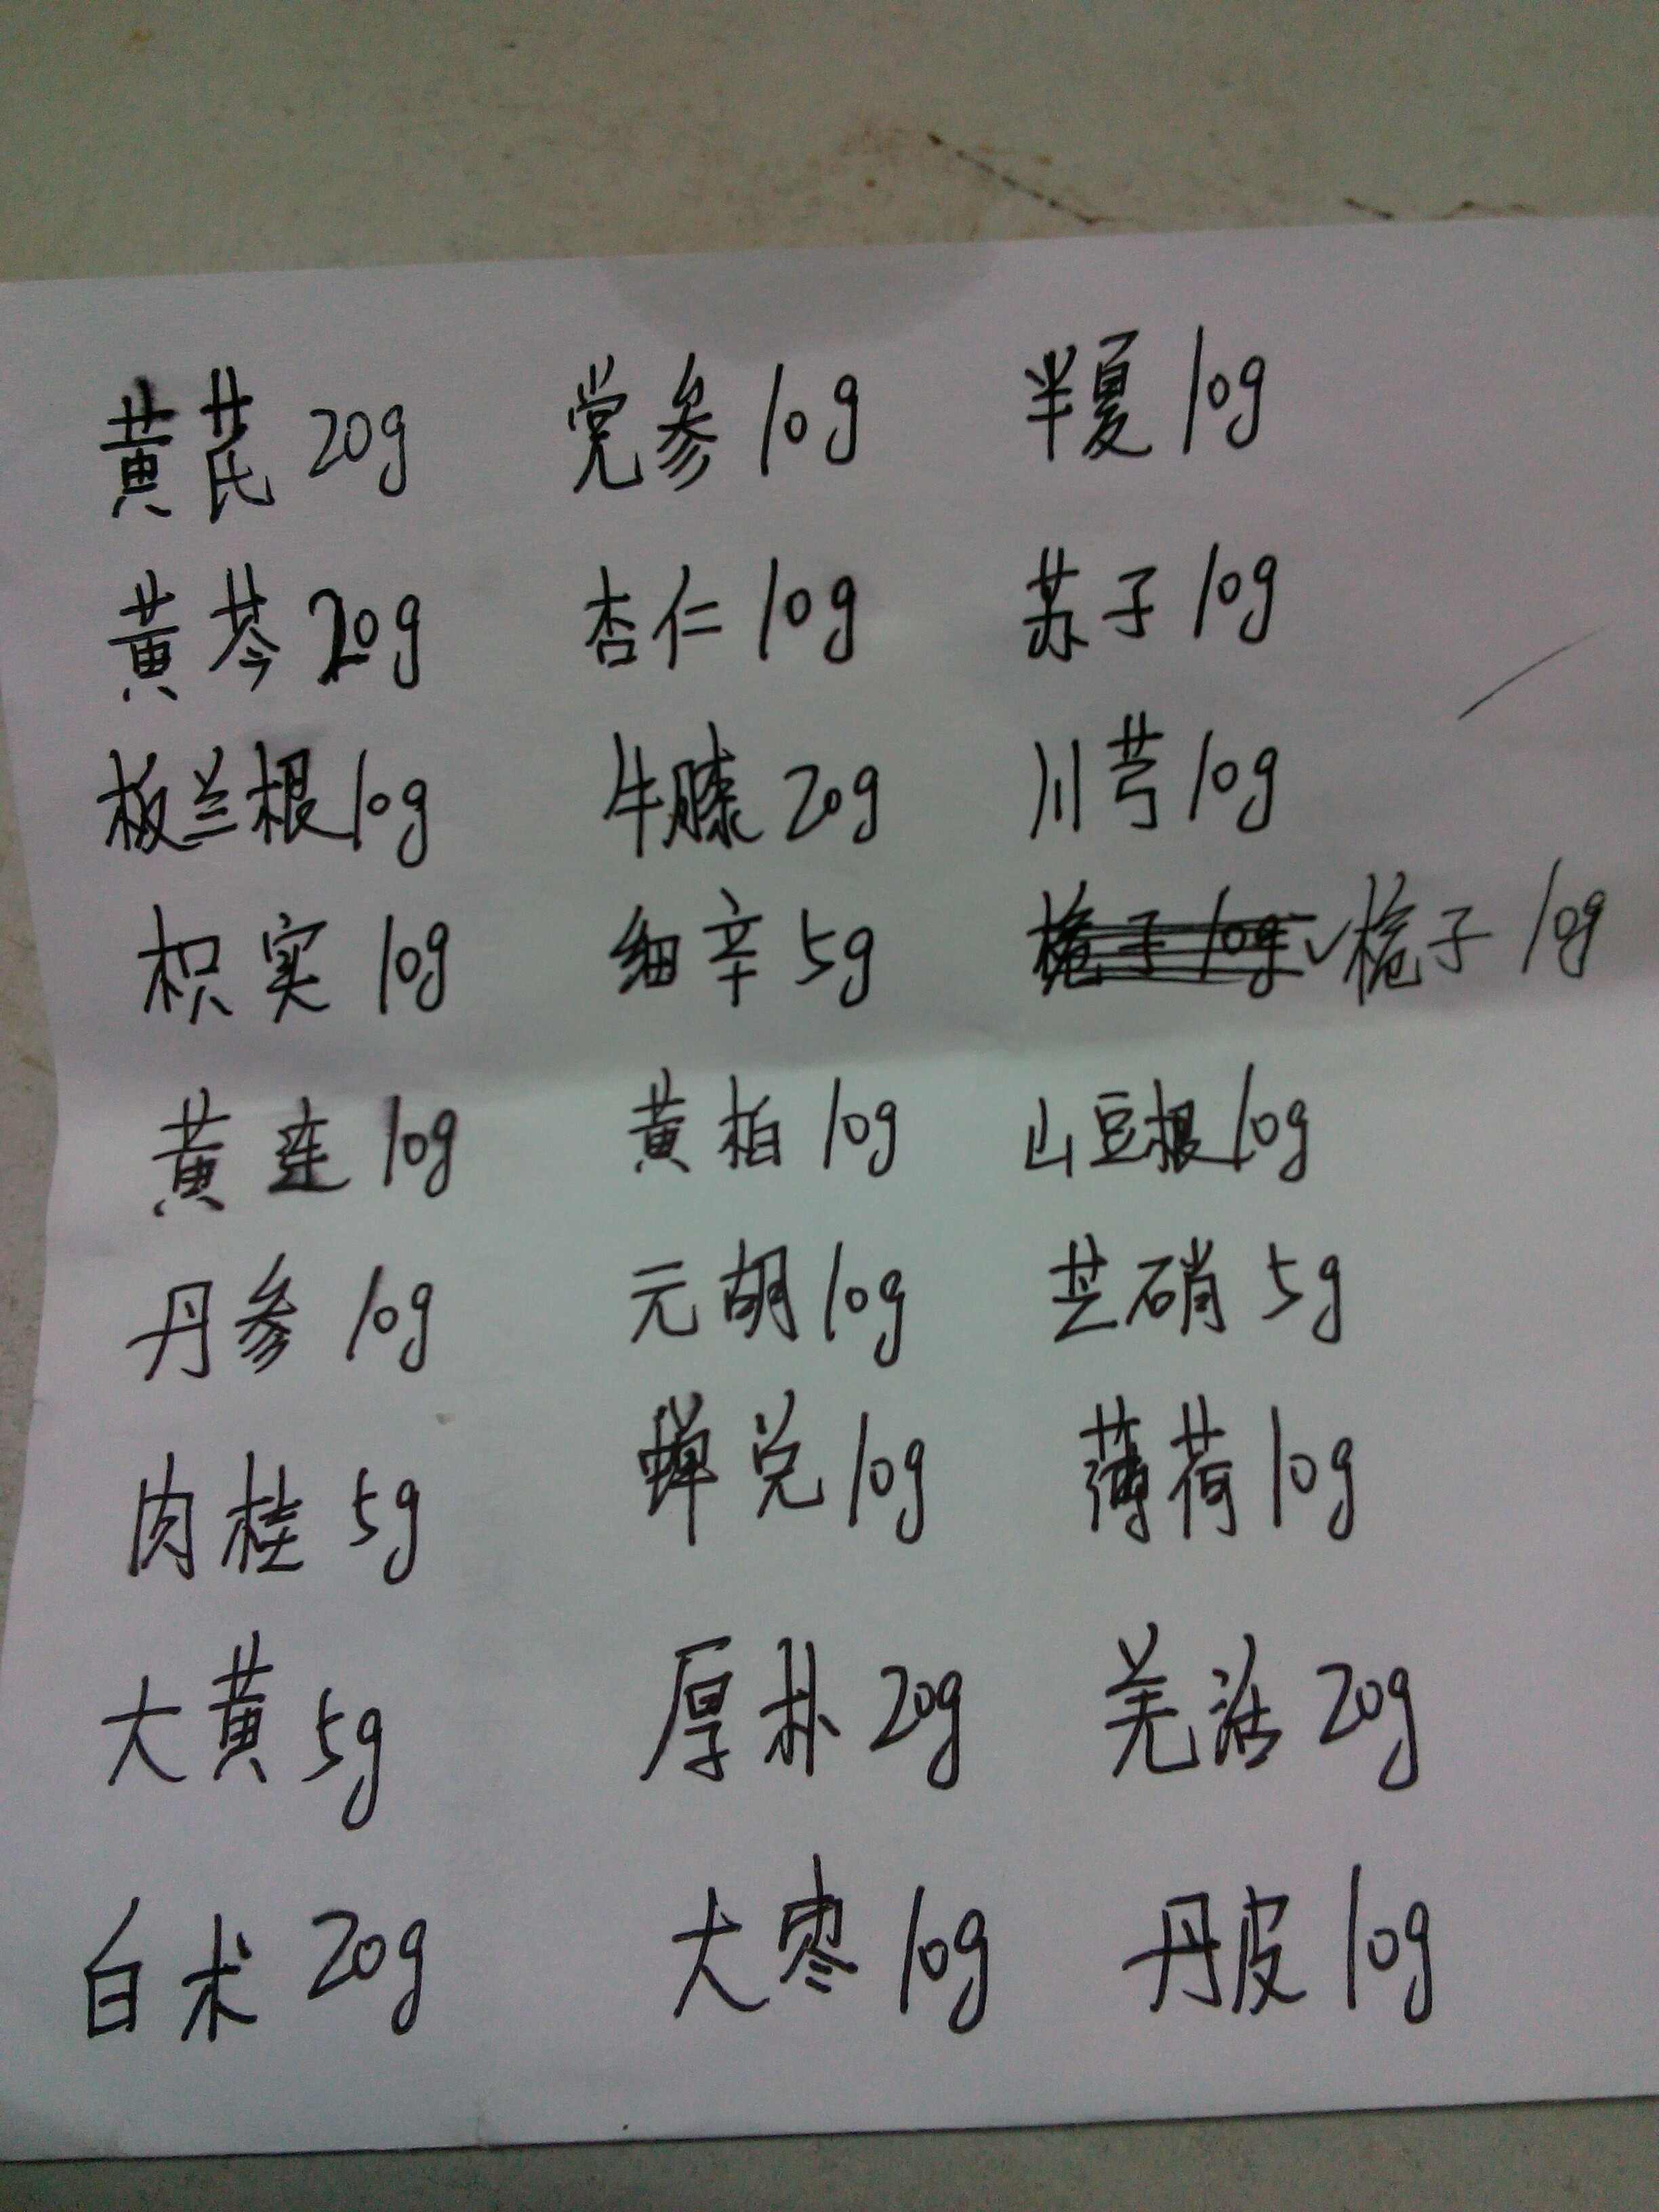 黄芪 20g 党参 10g 半夏 10g
黄芩 20g 杏仁 10g 苏子 10g
板兰根 10g 牛膝 20g 川芎 10g
枳实 10g 细辛 5g 栀子 10g ✓栀子 10g
黄连 10g 黄柏 10g 山豆根 10g
丹参 10g 元胡 10g 芒硝 5g
肉桂 5g 蝉兑 10g 薄荷 10g
大黄 5g 厚朴 20g 羌活 20g
白术 20g 大枣 10g 丹皮 10g